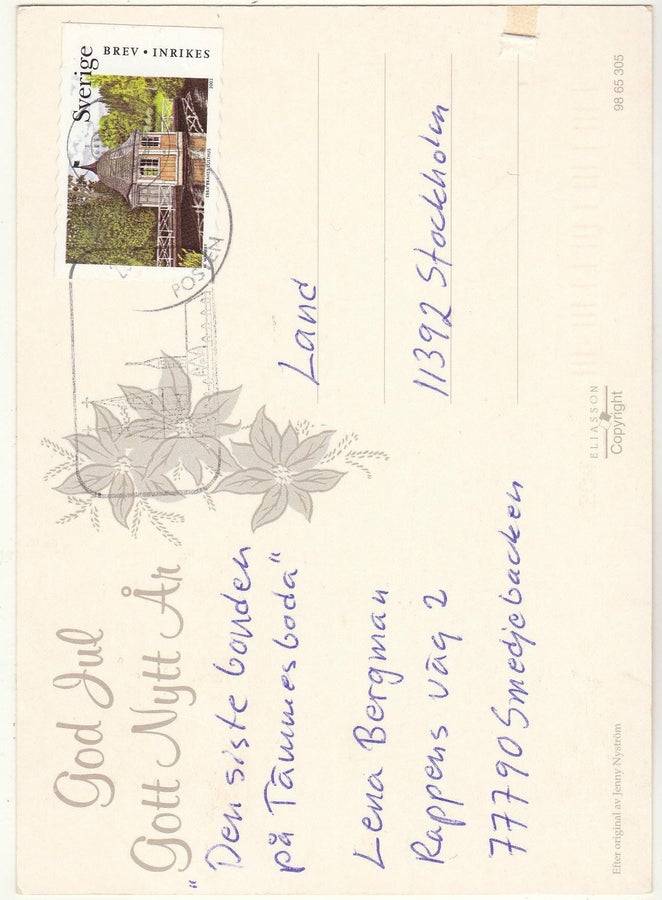 God Jul
Gott Nytt År
"Den siste bonden
på Tämmesboda"
Lena Bergman
Rappens väg 2
77790 Smedjebacken
Efter original av Jenny Nyström
Sverige
BREV • INRIKES
POSTEN
Land
11392 Stockholm
ELIASSON
Copyright
98 65 305